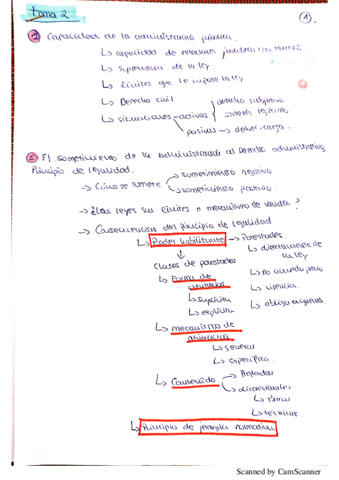 tema 2
1.
1 Capacidad de la administración pública.
↳ capacidad de relaciones jurídicas con
↳ supremacía de la ley.
↳ límites que le impone la ley
↳ Derecho civil
↳ situaciones activas
derecho subjetivo
interés legítimo
pasivas → deber, carga...
2 El sometimiento de la administración al Derecho administrativo
Principio de legalidad.
→ Cómo se somete
sometimiento negativo
sometimiento positivo
→ ¿Las leyes son límites o mecanismo de ?
→ Consecuencias del principio de legalidad
↳ Poder habilitante → Potestades
↳ directamente de la ley
↳ no
↳
↳
Clases de potestades
↳ Forma de
↳ implícita
↳ explícita
↳ mecanismo de atribución
↳ general
↳ específica.
↳ Contenido
Regladas
discrecionales
↳ puras
↳ técnicas
↳ Principio de jerarquía normativa
Scanned by CamScanner